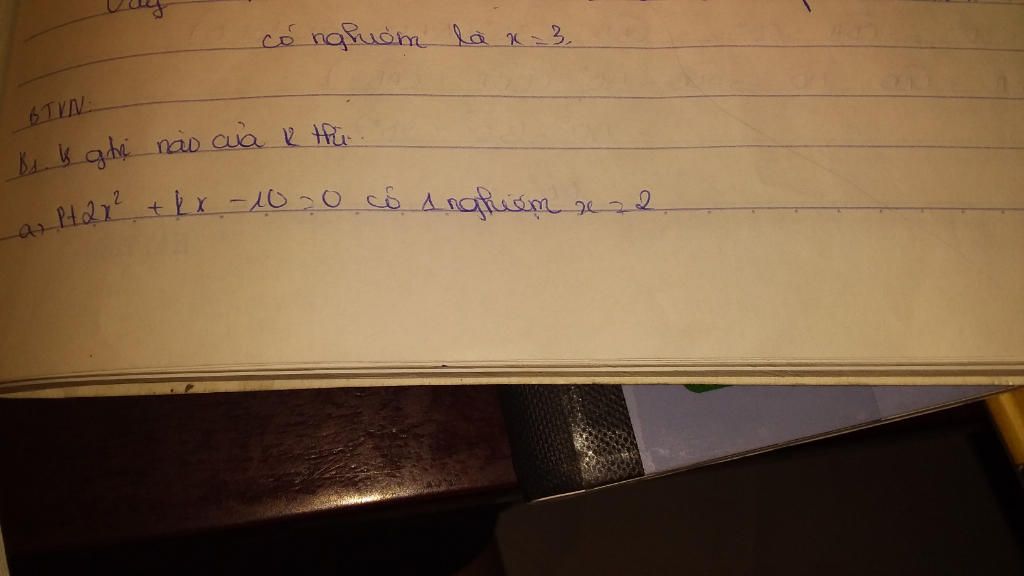 Vậy
có nghiệm là x = 3.
BTVN:
B1. Vs ghị nào của k thì.
a, Pt 2x² + kx - 10 = 0 có 1 nghiệm x = 2